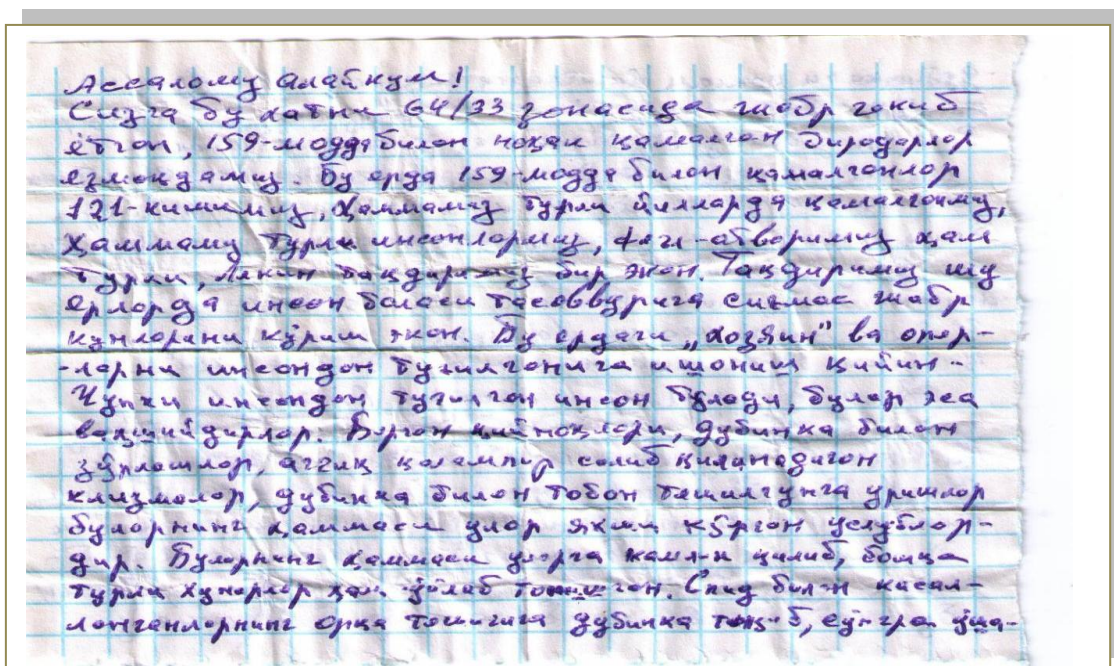 Ассалому алайкум!
Сизга бу хатни 64/33 зонасида жабр чекиб
ётган, 159-модда билан ноҳақ қамалган биродарлар
ёзмоқдамиз. Бу ерда 159-модда билан қамалганлар
121-кишимиз, Ҳаммамиз турли йилларда қамалганмиз,
Ҳаммамиз турли инсонлармиз, феъл-атворимиз ҳам
турли, Лекин тақдиримиз бир экан. Тақдиримиз шу
ерларда инсон боласи тасаввурига сиғмас жабр
кунларини кўриш экан. Бу ердаги „хозяин" ва опер-
-ларни инсондан туғилганига ишониш қийин-
Чунки инсондан туғилган инсон бўлади, булар эса
ваҳшийдирлар. Берган қийноқлари, дубинка билан
зўрлашлар, аччиқ қалампир солиб қилинадиган
клизмалар, дубинка билан товон тешилгунга уришлар
буларнинг ҳаммаси улар яхши кўрган услублар-
дир. Буларнинг ҳаммаси уларга камлик қилиб, бошқа
турли хунарлар ҳам ўйлаб топишган. Спид билан касал-
ланганларнинг орқа тешигига дубинка тиқиб, сўнгра ўша-